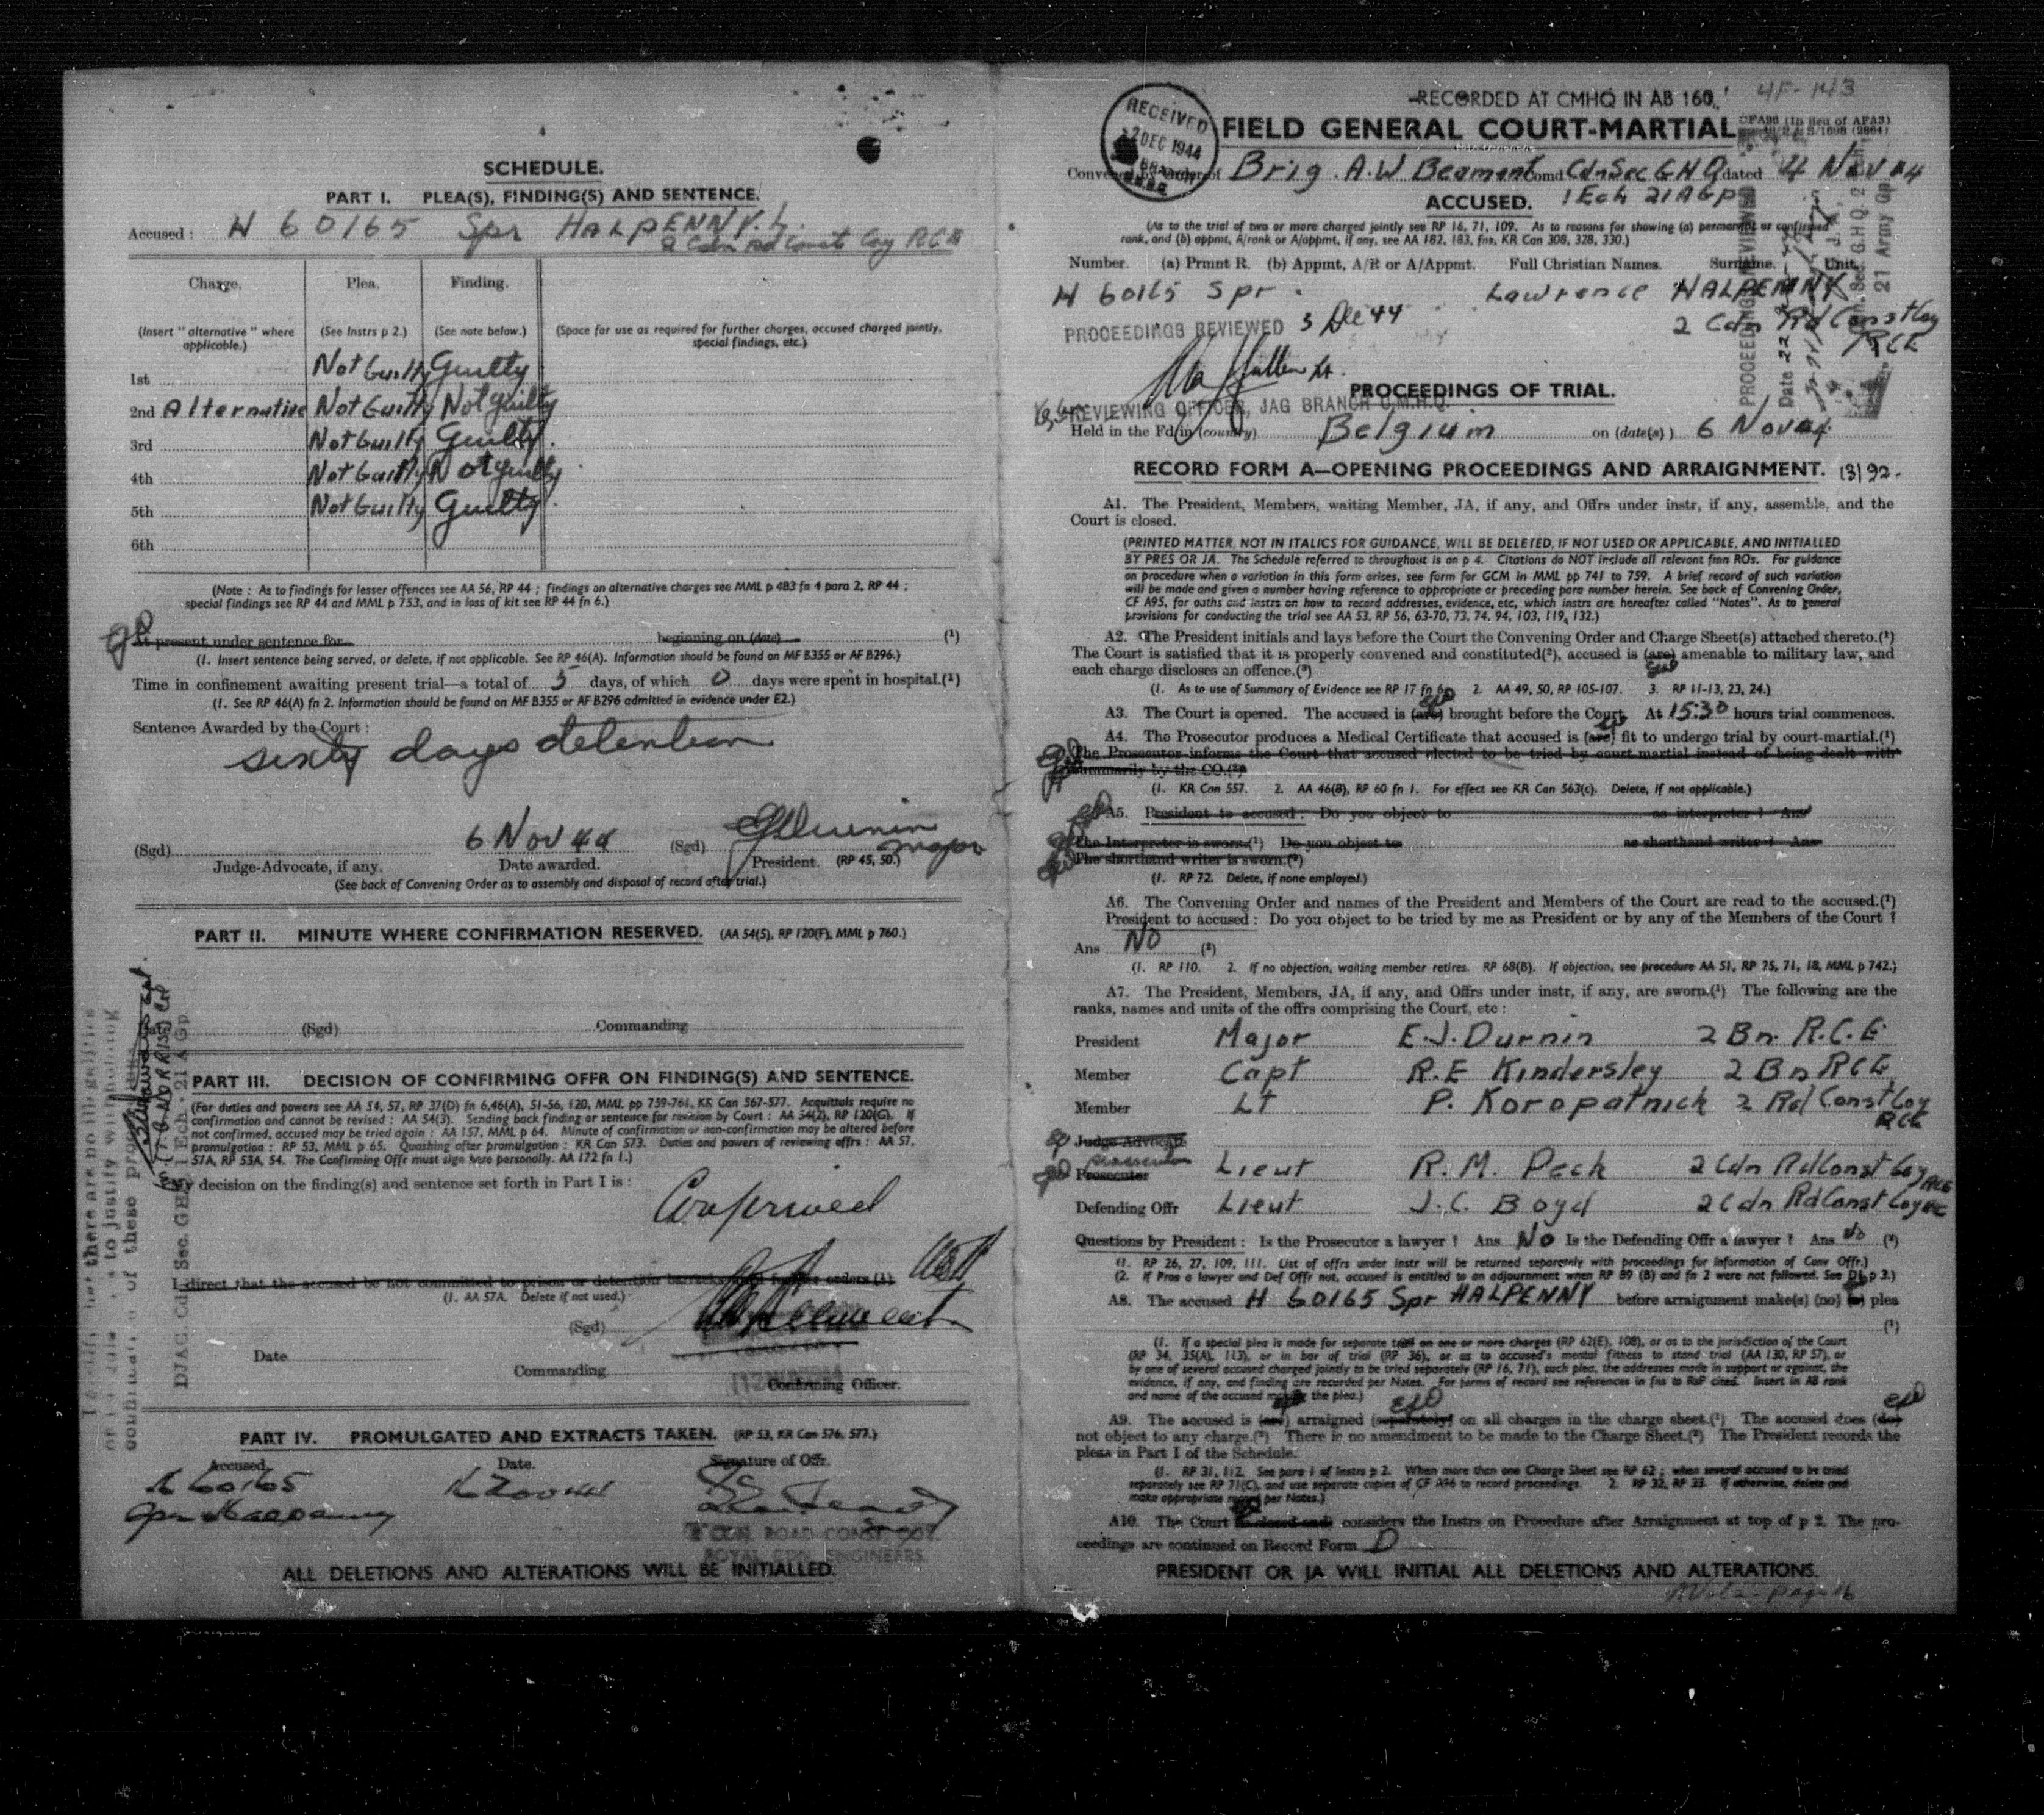 SCHEDULE.
PART I. PLEA(S), FINDING(S) AND SENTENCE.
Accused: H 60165 Spr HALPENNY. L.
2 Cdn Rd Const Coy RCE
Charge. Plea. Finding.
(Insert "alternative" where applicable.) (See Instrs p 2.) (See note below.) (Space for use as required for further charges, accused charged jointly, special findings, etc.)
1st Not Guilty Guilty
2nd Alternative Not Guilty Not guilty
3rd Not Guilty Guilty.
4th Not Guilty Not guilty
5th Not Guilty Guilty
6th
(Note : As to findings for lesser offences see AA 56, RP 44 ; findings on alternative charges see MML p 483 fn 4 para 2, RP 44 ;
special findings see RP 44 and MML p 753, and in loss of kit see RP 44 fn 6.)
At present under sentence for beginning on (date) (1)
(1. Insert sentence being served, or delete, if not applicable. See RP 46(A). Information should be found on MF B355 or AF B296.)
Time in confinement awaiting present trial—a total of 5 days, of which 0 days were spent in hospital.(1)
(1. See RP 46(A) fn 2. Information should be found on MF B355 or AF B296 admitted in evidence under E2.)
Sentence Awarded by the Court :
sixty days detention
(Sgd) 6 Nov 44 (Sgd) EJDurnin Major
Judge-Advocate, if any. Date awarded. President. (RP 45, 50.)
(See back of Convening Order as to assembly and disposal of record after trial.)
PART II. MINUTE WHERE CONFIRMATION RESERVED. (AA 54(5), RP 120(F), MML p 760.)
Date (Sgd) Commanding
PART III. DECISION OF CONFIRMING OFFR ON FINDING(S) AND SENTENCE.
(For duties and powers see AA 54, 57, RP 37(D) fn 6,46(A), 51-56, 120, MML pp 759-761, KR Can 567-577. Acquittals require no
confirmation and cannot be revised : AA 54(3). Sending back finding or sentence for revision by Court : AA 54(2), RP 120(G). If
not confirmed, accused may be tried again : AA 157, MML p 64. Minute of confirmation or non-confirmation may be altered before
promulgation : RP 53, MML p 65. Quashing after promulgation : KR Can 573. Duties and powers of reviewing offrs : AA 57,
57A, RP 53A, 54. The Confirming Offr must sign here personally. AA 172 fn 1.)
My decision on the finding(s) and sentence set forth in Part I is :
Confirmed
I direct that the accused be not committed to prison or detention barracks until further orders (1).
(1. AA 57A. Delete if not used.)
(Sgd)
Date
Commanding
Confirming Officer.
PART IV. PROMULGATED AND EXTRACTS TAKEN. (RP 53, KR Can 576, 577.)
Accused. Date. Signature of Offr.
H 60165
Spr Halpenny
2 CDN ROAD CONST COY.
ROYAL CDN ENGINEERS.
ALL DELETIONS AND ALTERATIONS WILL BE INITIALLED.
DJAG, Cdn Sec. GHQ 1 Ech. 21 A Gp.
RECORDED AT CMHQ IN AB 160. 4F-143
RECEIVED
2 DEC 1944
FIELD GENERAL COURT-MARTIAL
CFA96 (In lieu of AFA3)
Convened by Order of Brig. A.W Beament Comd Cdn Sec GHQ dated 4 Nov 44
1 Ech 21 A Gp
ACCUSED.
(As to the trial of two or more charged jointly see RP 16, 71, 109. As to reasons for showing (a) permanent or confirmed
rank, and (b) appmt, A/rank or A/appmt, if any, see AA 182, 183, fns, KR Can 308, 328, 330.)
Number. (a) Prmnt R. (b) Appmt, A/R or A/Appmt. Full Christian Names. Surname. Unit.
H 60165 Spr. Lawrence HALPENNY
2 Cdn Rd Const Coy
RCE
PROCEEDINGS REVIEWED 3 Dec 44
PROCEEDINGS REVIEWED
REVIEWING OFFICER, JAG BRANCH C.M.H.Q.
PROCEEDINGS OF TRIAL.
Held in the Fd in (country) Belgium on (date(s)) 6 Nov 44.
RECORD FORM A—OPENING PROCEEDINGS AND ARRAIGNMENT.
A1. The President, Members, waiting Member, JA, if any, and Offrs under instr, if any, assemble, and the
Court is closed.
(PRINTED MATTER, NOT IN ITALICS FOR GUIDANCE, WILL BE DELETED, IF NOT USED OR APPLICABLE, AND INITIALLED
BY PRES OR JA. The Schedule referred to throughout is on p 4. Citations do NOT include all relevant fnsn ROs. For guidance
on procedure when a variation in this form arises, see form for GCM in MML pp 741 to 759. A brief record of such variation
will be made and given a number having reference to appropriate or preceding para number herein. See back of Convening Order,
CF A95, for oaths and instrs on how to record addresses, evidence, etc, which instrs are hereafter called "Notes". As to general
provisions for conducting the trial see AA 53, RP 56, 63-70, 73, 74, 94, 103, 119, 132.)
A2. The President initials and lays before the Court the Convening Order and Charge Sheet(s) attached thereto.(1)
The Court is satisfied that it is properly convened and constituted(2), accused is (are) amenable to military law, and
each charge discloses an offence.(3)
(1. As to use of Summary of Evidence see RP 17 fn 6. 2. AA 49, 50, RP 105-107. 3. RP 11-13, 23, 24.)
A3. The Court is opened. The accused is (are) brought before the Court. At 15:30 hours trial commences.
A4. The Prosecutor produces a Medical Certificate that accused is (are) fit to undergo trial by court-martial.(1)
The Prosecutor informs the Court that accused elected to be tried by court-martial instead of being dealt with
summarily by the CO.(2)
(1. KR Can 557. 2. AA 46(8), RP 60 fn 1. For effect see KR Can 563(c). Delete, if not applicable.)
A5. President to accused : Do you object to as interpreter ? Ans
The Interpreter is sworn.(1) Do you object to as shorthand writer ? Ans
The shorthand writer is sworn.(1)
(1. RP 72. Delete, if none employed.)
A6. The Convening Order and names of the President and Members of the Court are read to the accused.(1)
President to accused : Do you object to be tried by me as President or by any of the Members of the Court ?
Ans No (2)
(1. RP 110. 2. If no objection, waiting member retires. RP 68(B). If objection, see procedure AA 51, RP 25, 71, 18, MML p 742.)
A7. The President, Members, JA, if any, and Offrs under instr, if any, are sworn.(1) The following are the
ranks, names and units of the offrs comprising the Court, etc :
President Major E.J. Durnin 2 Bn. R.C.E
Member Capt R.E Kindersley 2 Bn RCE
Member Lt P. Koropatnick 2 Rd Const Coy
RCE
Judge Advocate
Prosecutor Lieut R. M. Peck 2 Cdn Rd Const Coy RCE
Defending Offr Lieut J.C. Boyd 2 Cdn Rd Const Coy RCE
Questions by President : Is the Prosecutor a lawyer ? Ans No Is the Defending Offr a lawyer ? Ans No (2)
(1. RP 26, 27, 109, 111. List of offrs under instr will be returned separately with proceedings for information of Conv Offr.)
(2. If Pros a lawyer and Def Offr not, accused is entitled to an adjournment when RP 89 (B) and fn 2 were not followed. See D1, p 3.)
A8. The accused H 60165 Spr HALPENNY before arraignment make(s) (no) (a) plea
(1)
(1. If a special plea is made for separate trial on one or more charges (RP 62(E), 108), or as to the jurisdiction of the Court
(RP 34, 35(A), 113), or in bar of trial (RP 36), or as to accused's mental fitness to stand trial (AA 130, RP 57), or
by one of several accused charged jointly to be tried separately (RP 16, 71), such plea, the addresses made in support or against, the
evidence, if any, and finding are recorded per Notes. For forms of record see references in fns to RsP cited. Insert in A8 rank
and name of the accused making the plea.)
A9. The accused is (are) arraigned (separately) on all charges in the charge sheet.(1) The accused does (do)
not object to any charge.(2) There is no amendment to be made to the Charge Sheet.(2) The President records the
pleas in Part I of the Schedule.
(1. RP 31, 112. See para 1 of Instrs p 2. When more than one Charge Sheet see RP 62 ; when several accused to be tried
separately see RP 71(C), and use separate copies of CF A96 to record proceedings. 2. RP 32, RP 33. If otherwise, delete and
make appropriate record per Notes.)
A10. The Court (is closed and) considers the Instrs on Procedure after Arraignment at top of p 2. The pro-
ceedings are continued on Record Form D
PRESIDENT OR JA WILL INITIAL ALL DELETIONS AND ALTERATIONS.